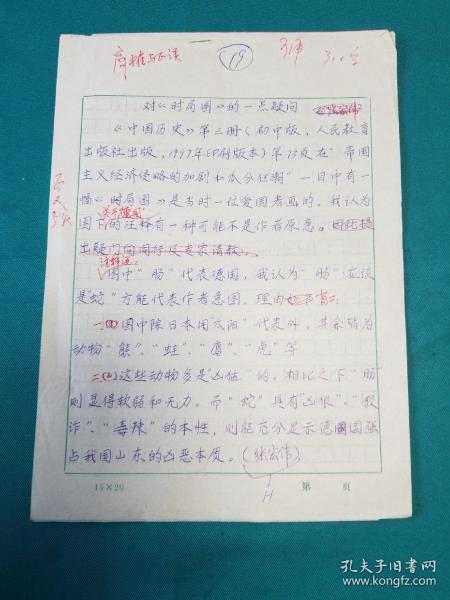 商榷与正误
19
对《时局图》的一点疑问
《中国历史》第三册(初中版,人民教育
出版社出版,1997年印刷版本)第73页在"帝国
主义经济侵略的加剧和瓜分狂潮"一目中有一
幅《时局图》是当时一位爱国者画的。我认为
图下的注释有一种可能不是作者原意。
注释说:
图中"肠"代表德国,我认为"肠"应该
是"蛇"方能代表作者意图。理由有二:
一、图中除日本用"太阳"代表外,其余皆为
动物"熊"、"蛙"、"鹰"、"虎"等
二、这些动物多是"凶恶"的。相比之下"肠"
则显得软弱和无力。而"蛇"具有"凶狠"、"狡
诈"、"毒辣"的本性,则能充分显示德国图强
占我国山东的凶恶本质。(张宏伟)
15×20
第 页
孔夫子旧书网
www.kongfz.com